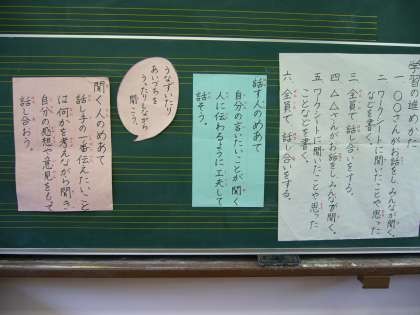 学習の進めかた
一、〇〇さんがお話をしみんなが聞く。
二、ワークシートに聞いたことや思った
ことなどを書く。
三、全員で話し合いをする。
四、△△さんがお話をしみんなが聞く。
五、ワークシートに聞いたことや思った
ことなどを書く。
六、全員で話し合いをする。
話す人のめあて
自分の言いたいことが聞く
人に伝わるように工夫して
話そう。
うなずいたり
あいづちを
うったりしながら
聞こう。
聞く人のめあて
話し手の一番伝えたいこと
は何かを考えながら聞き
自分の感想や意見をもって
話し合おう。